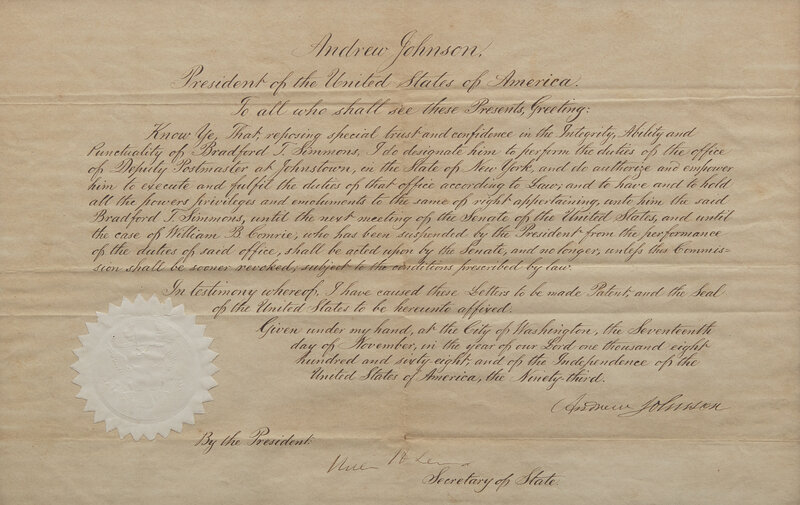 Andrew Johnson,
President of the United States of America.
To all who shall see these Presents, Greeting:
Know Ye, That, reposing special trust and confidence in the Integrity, Ability and
Punctuality of Bradford T. Simmons, I do designate him to perform the duties of the office
of Deputy Postmaster at Johnstown, in the State of New York, and do authorize and empower
him to execute and fulfil the duties of that office according to Law; and to have and to hold
all the powers privileges and emoluments to the same of right appertaining, unto him the said
Bradford T. Simmons, until the next meeting of the Senate of the United States, and until
the case of William B. Comrie, who has been suspended by the President from the performance
of the duties of said office, shall be acted upon by the Senate, and no longer, unless this Commis-
sion shall be sooner revoked; subject to the conditions prescribed by law.
In testimony whereof, I have caused these Letters to be made Patent, and the Seal
of the United States to be hereunto affixed.
Given under my hand, at the City of Washington, the Seventeenth
day of November, in the year of our Lord one thousand eight
hundred and sixty-eight, and of the Independence of the
United States of America, the Ninety-third.
Andrew Johnson
By the President:
Secretary of State.